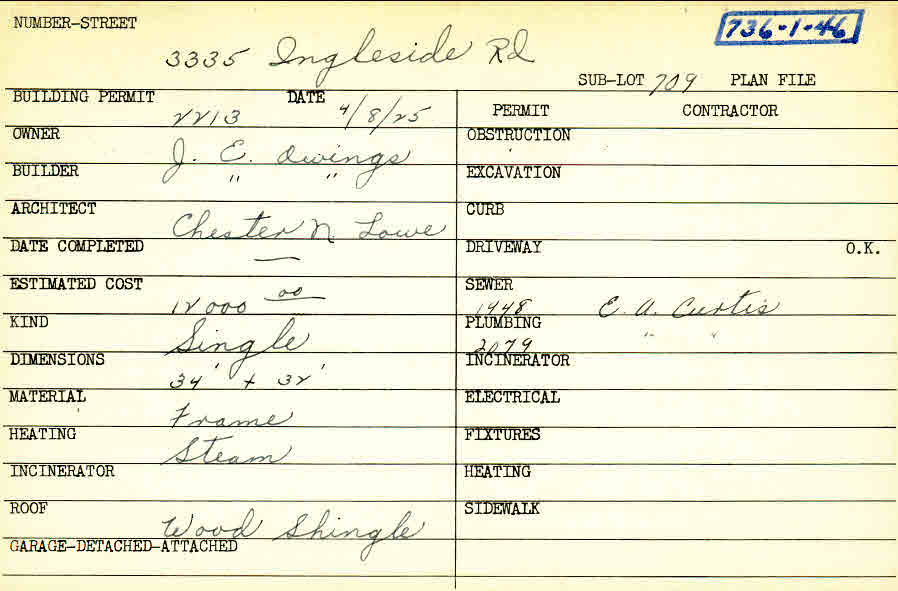 NUMBER-STREET
736-1-46
3335 Ingleside Rd
SUB-LOT 709 PLAN FILE
BUILDING PERMIT 2213 DATE 4/8/25
PERMIT CONTRACTOR
OWNER J. E. Owings
OBSTRUCTION
BUILDER " "
EXCAVATION
ARCHITECT Chester N. Lowe
CURB
DATE COMPLETED —
DRIVEWAY O.K.
ESTIMATED COST 12000 00
SEWER 1448 E. A. Curtis
KIND Single
PLUMBING 2079 " "
DIMENSIONS 34' + 32'
INCINERATOR
MATERIAL Frame
ELECTRICAL
HEATING Steam
FIXTURES
INCINERATOR
HEATING
ROOF Wood Shingle
SIDEWALK
GARAGE-DETACHED-ATTACHED